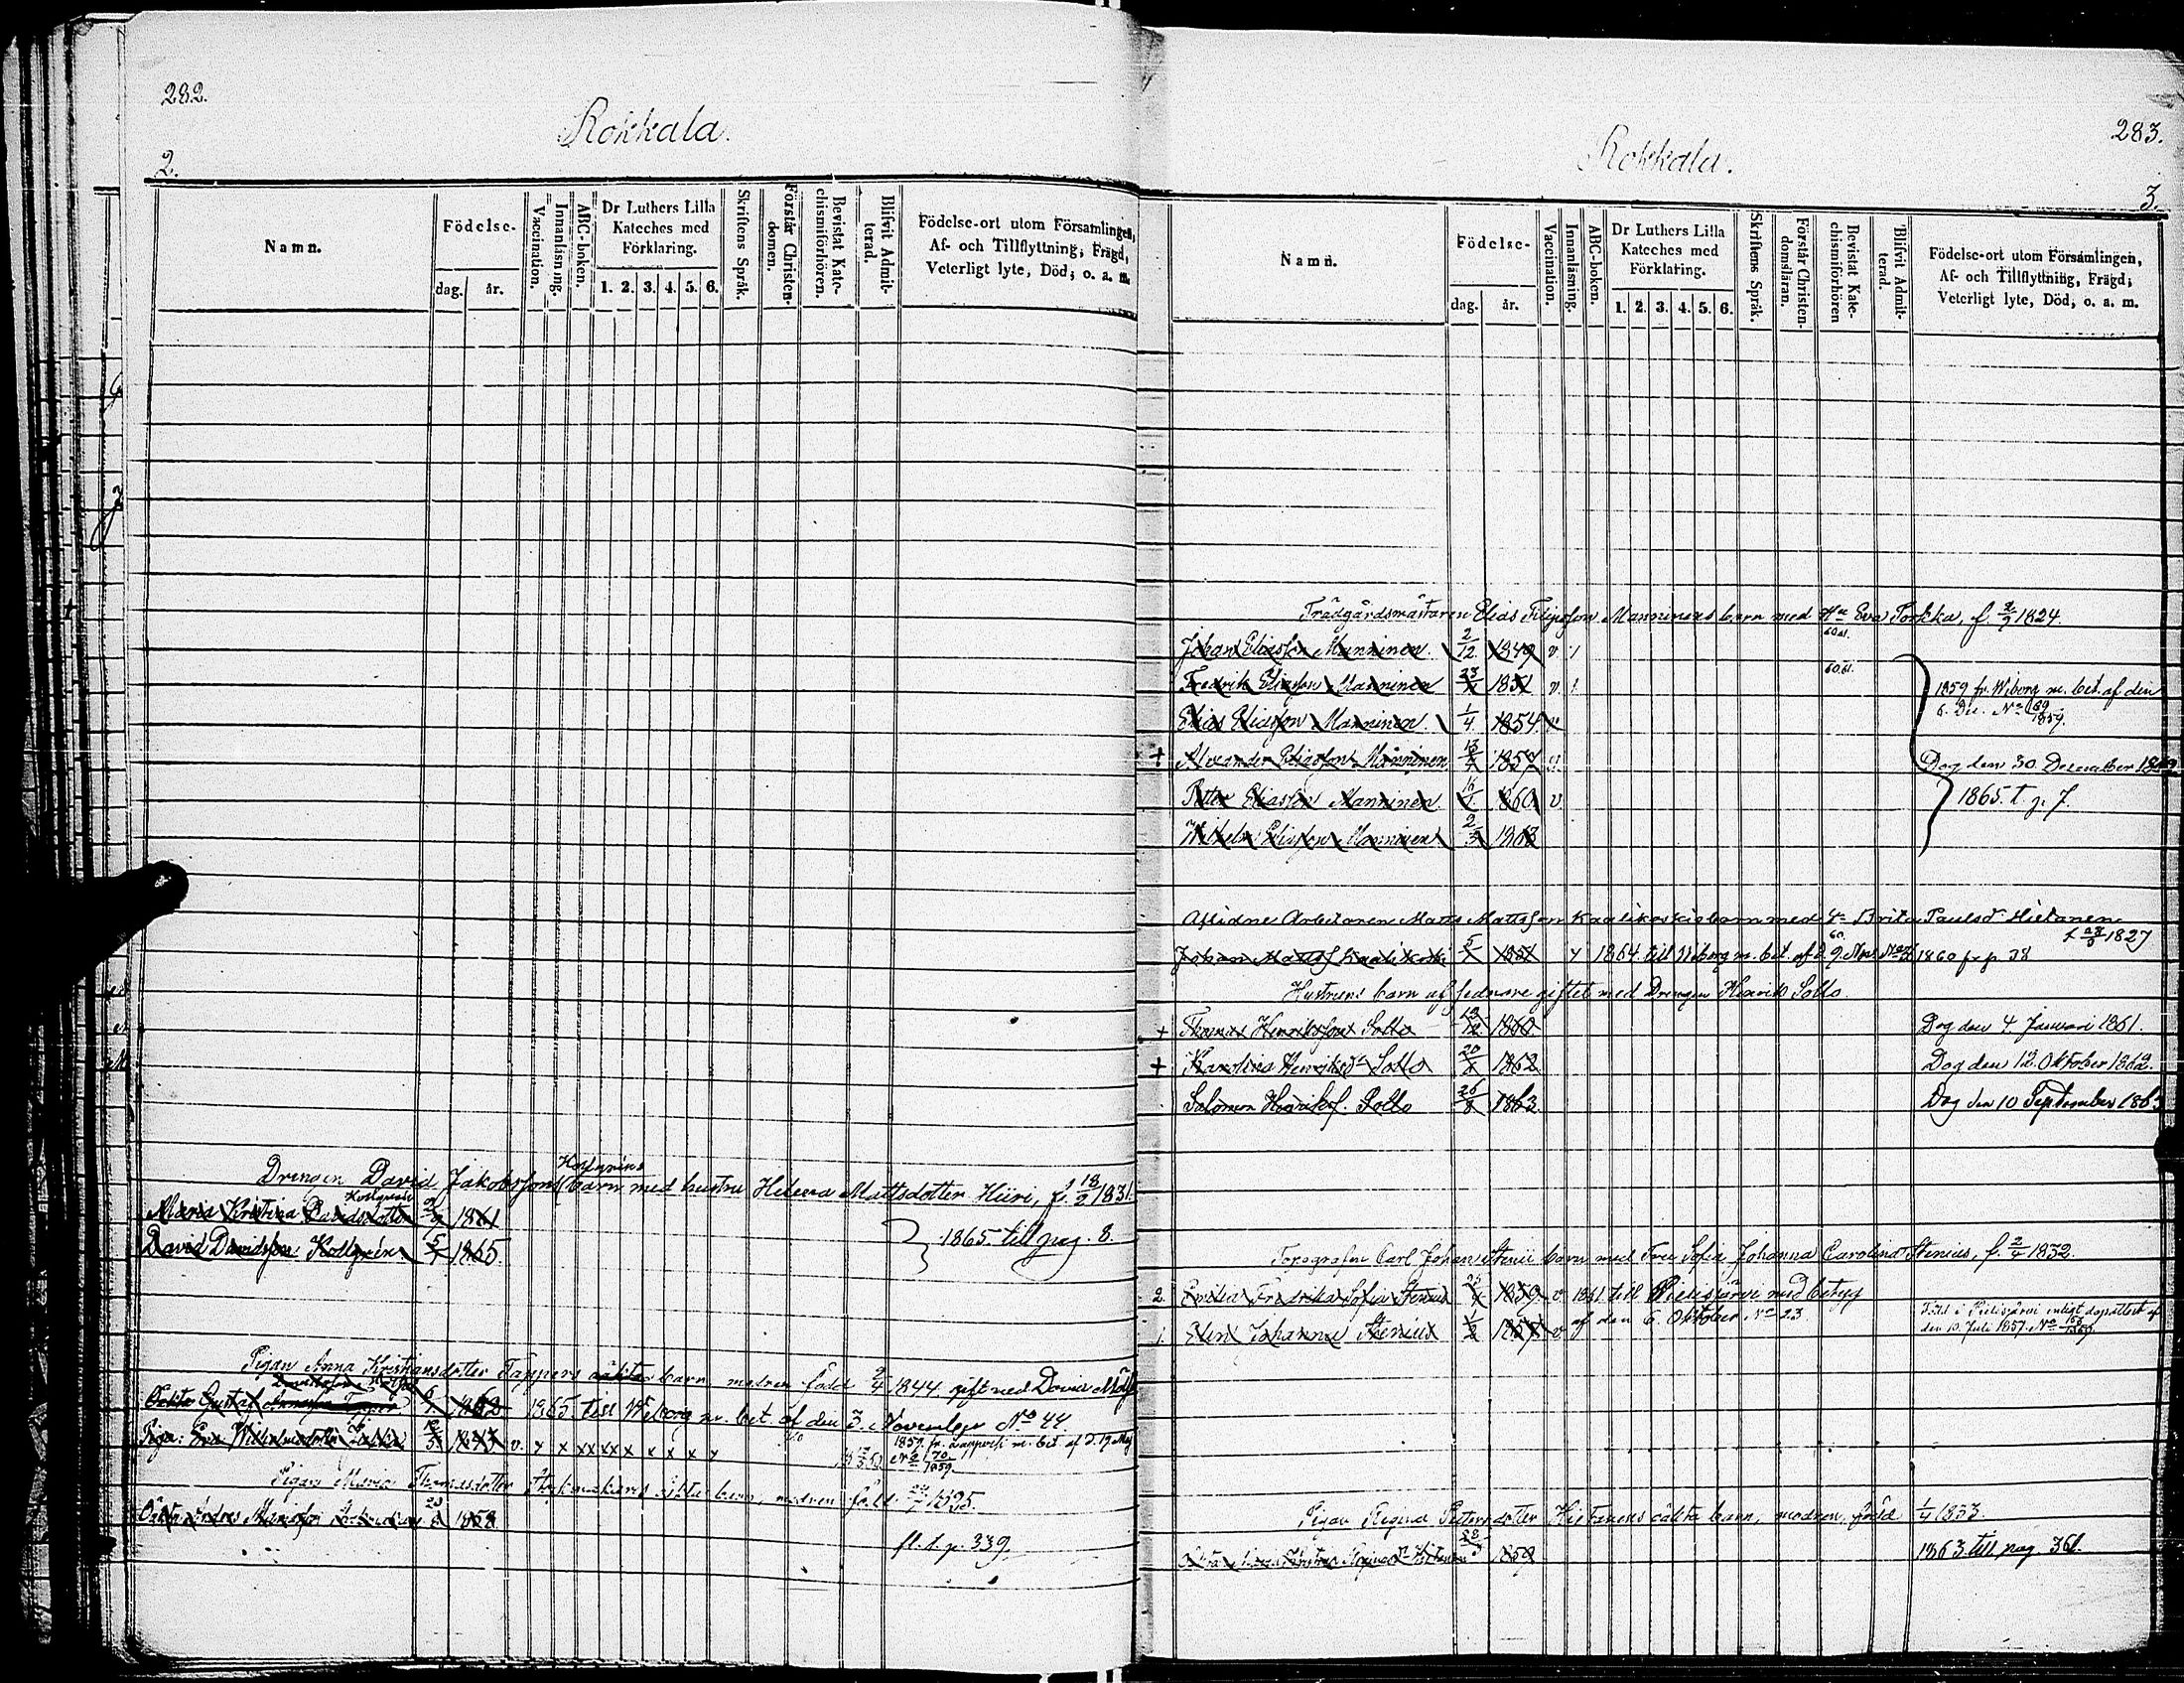 282.
Rokkala.
2.
Namn.
Födelse-
dag. år.
Vaccination.
Innanläsning.
ABC-boken.
Dr Luthers Lilla Kateches med Förklaring.
1. 2. 3. 4. 5. 6.
Skriftens Språk.
Förstår Christendomen.
Bevistat Katechismiförhören.
Blifvit Admitterad.
Födelse-ort utom Församlingen,
Af- och Tillflyttning, Frägd,
Veterligt lyte, Död, o. a. m.
Drengen David Jakobsson Kollgréns barn med hustru Helena Mattsdotter Hiiri, f. 18/2 1831.
Maria Kristina Davidsdotter Kollgrén 1861
David Davidsson Kollgrén 5 1865
1865 till pag. 8.
Pigan Anna Kristiansdotter Tappers oäkta barn, modren född 2/4 1844. gift med
Oäkta Gustaf 1862 1865 till Wiborg m. bet. af den 3. November No 44
Piga: Eva Wilhelmsdotter v. y x x x x x x x x y 1859 fr. m. bet. af d. 19 Maj
No 70/1859.
Pigan Maria Thomasdotter oäkta barn, modren född 1835.
Oäkta Andreas 1858
fl. t. p. 339.
283.
Rokkala.
3.
Namn.
Födelse-
dag. år.
Vaccination.
Innanläsning.
ABC-boken.
Dr Luthers Lilla Kateches med Förklaring.
1. 2. 3. 4. 5. 6.
Skriftens Språk.
Förstår Christendomsläran.
Bevistat Katechismiförhören
Blifvit Admitterad.
Födelse-ort utom Församlingen,
Af- och Tillflyttning, Frägd,
Veterligt lyte, Död, o. a. m.
Trädgårdsmästaren Elias Filipsson Manninens barn med Hu Eva Torkka, f. 1824.
Johan Eliasson Manninen. 2/12 1849 v. 60.61.
Fredrik Eliasson Manninen 1851 v 60.61. 1859 fr. Wiborg m. bet. af den
Elias Eliasson Manninen 1/4 1854 v 6. Dec. No 69/1859.
+ Alexander Eliasson Manninen 1857 v. Dog den 30 December
Petter Eliasson Manninen 1860 v 1865. t. p. 7.
Wilhelm Eliasson Manninen 2/3 1863
Aflidne Arbetaren Matts Mattsson Kaalikoskis barn med Brita Paulsd. Hietanen
f. 1827
Johan Mattss. Kaalikoski 1851 y 1864 till Wiborg m. bet. af d. 9. 60. 1860 fr p. 38
Hustruns barn af sednare giftet med Drengen Henrik Sollo
+ Thomas Henriksson Sollo 1860 Dog den 4 Januari 1861.
+ Karolina Henriksdr Sollo 20 1862 Dog den 12 Oktober 1862.
Salomon Henrikss. Sollo 26/8 1863. Dog den 10 September 1863
Topografen Carl Johan Stenii barn med Fru Sofia Johanna Carolina Stenius, f. 2/4 1832.
2. Emilia Fredrika Sofia Stenius 1859 v 1861 till Pielisjärvi med betyg
af den 6. Oktober No 23.
1. Elin Johanna Stenius 1857 v Född i Pielisjärvi enligt dopattest af
den 10. Juli 1857. No
Pigan Regina Pettersdotter Hietanens oäkta barn, modren född 1/4 1833.
Oäkta 1859 1863 till pag. 361.